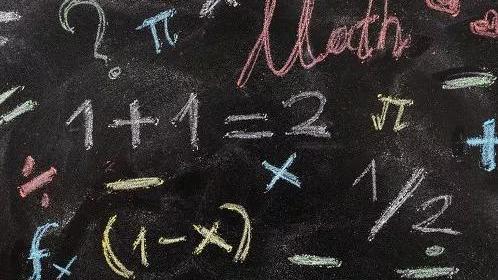 ? π Math
1 + 1 = 2 π
÷ − × 1/2 +
fx (1-x) − ÷